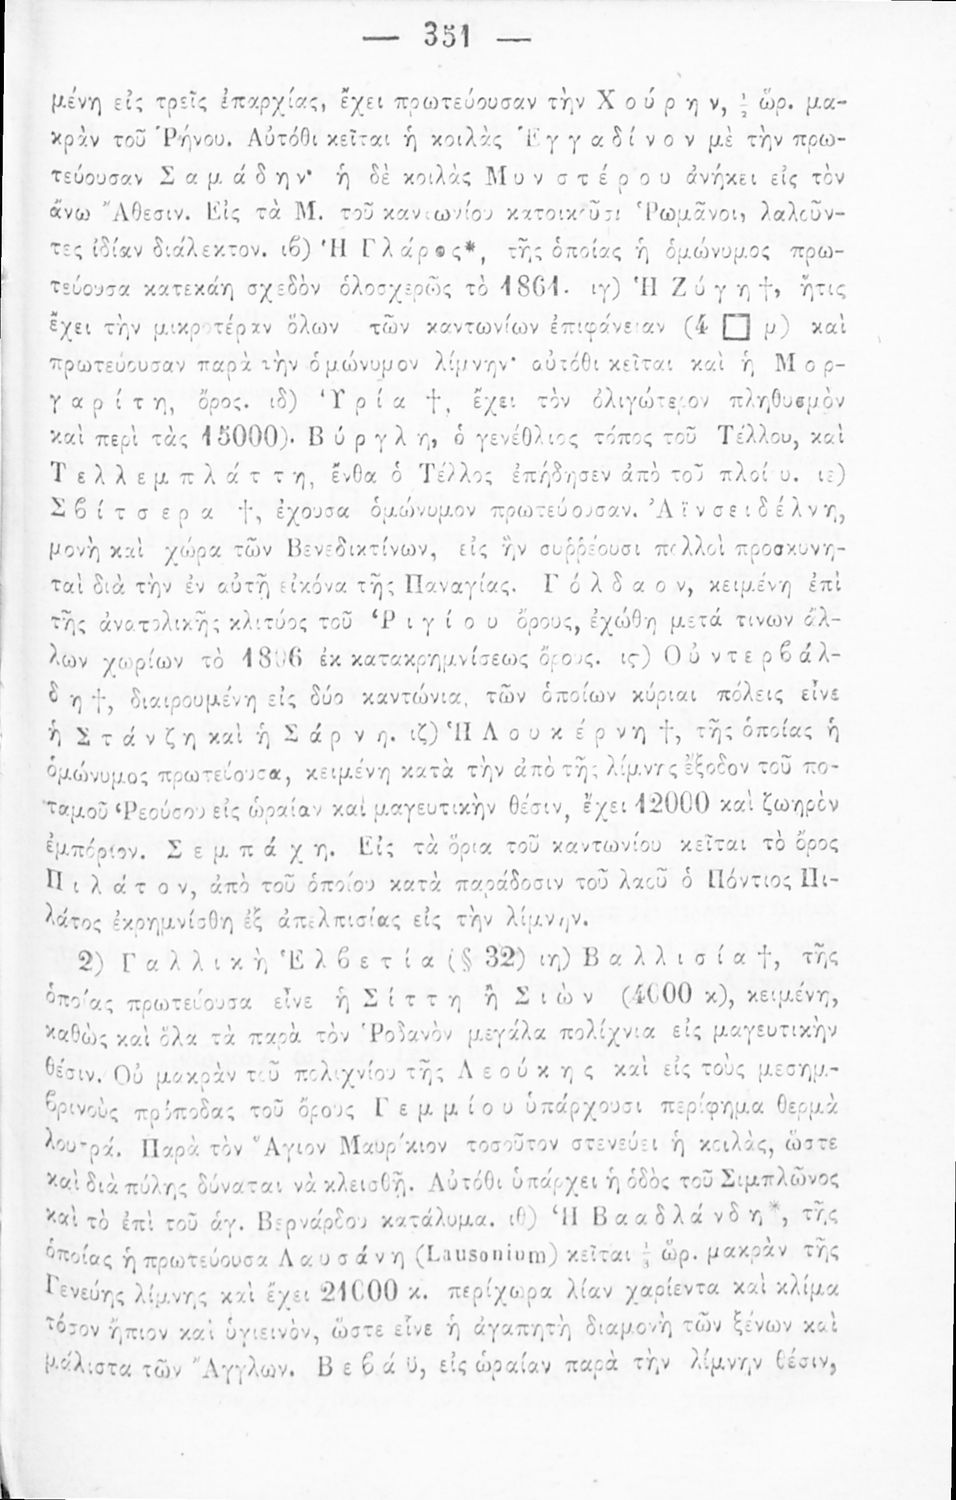 — 351 —
μένη εἰς τρεῖς ἐπαρχίας, ἔχει πρωτεύουσαν τὴν Χούρην, ὥρ. μα-
κρὰν τοῦ Ῥήνου. Αὐτόθι κεῖται ἡ κοιλὰς Ἐγγαδίνον μὲ τὴν πρω-
τεύουσαν Σαμάδην· ἡ δὲ κοιλὰς Μυνστέρου ἀνήκει εἰς τὸν
ἄνω Ἄθεσιν. Εἰς τὰ Μ. τοῦ καντωνίου κατοικοῦσι Ῥωμᾶνοι, λαλοῦν-
τες ἰδίαν διάλεκτον. ιβ) Ἡ Γλάρος*, τῆς ὁποίας ἡ ὁμώνυμος πρω-
τεύουσα κατεκάη σχεδὸν ὁλοσχερῶς τὸ 1861. ιγ) Ἡ Ζύγη†, ἥτις
ἔχει τὴν μικροτέραν ὅλων τῶν καντωνίων ἐπιφάνειαν (4 □ μ) καὶ
πρωτεύουσαν παρὰ τὴν ὁμώνυμον λίμνην· αὐτόθι κεῖται καὶ ἡ Μορ-
γαρίτη, ὄρος. ιδ) Ὑρία †, ἔχει τὸν ὀλιγώτερον πληθυσμὸν
καὶ περὶ τὰς 15000). Βύργλη, ὁ γενέθλιος τόπος τοῦ Τέλλου, καὶ
Τελλεμπλάττη, ἔνθα ὁ Τέλλος ἐπήδησεν ἀπὸ τοῦ πλοίου. ιε)
Σβίτσερα †, ἔχουσα ὁμώνυμον πρωτεύουσαν. Ἀϊνσειδέλνη,
μονὴ καὶ χώρα τῶν Βενεδικτίνων, εἰς ἣν συῤῥέουσι πολλοὶ προσκυνη-
ταὶ διὰ τὴν ἐν αὐτῇ εἰκόνα τῆς Παναγίας. Γόλδαον, κειμένη ἐπὶ
τῆς ἀνατολικῆς κλιτύος τοῦ Ῥιγίου ὄρους, ἐχώθη μετά τινων ἄλ-
λων χωρίων τὸ 1806 ἐκ κατακρημνίσεως ὄρους. ις) Οὐντερβάλ-
δη†, διαιρουμένη εἰς δύο καντώνια, τῶν ὁποίων κύριαι πόλεις εἶνε
ἡ Στάνζη καὶ ἡ Σάρνη. ιζ) Ἡ Λουκέρνη †, τῆς ὁποίας ἡ
ὁμώνυμος πρωτεύουσα, κειμένη κατὰ τὴν ἀπὸ τῆς λίμνης ἔξοδον τοῦ πο-
ταμοῦ Ῥεούσου εἰς ὡραίαν καὶ μαγευτικὴν θέσιν, ἔχει 12000 καὶ ζωηρὸν
ἐμπόριον. Σεμπάχη. Εἰς τὰ ὅρια τοῦ καντωνίου κεῖται τὸ ὄρος
Πιλάτον, ἀπὸ τοῦ ὁποίου κατὰ παράδοσιν τοῦ λαοῦ ὁ Πόντιος Πι-
λάτος ἐκρημνίσθη ἐξ ἀπελπισίας εἰς τὴν λίμνην.
2) Γαλλικὴ Ἑλβετία (§ 32) ιη) Βαλλισία†, τῆς
ὁποίας πρωτεύουσα εἶνε ἡ Σίττη ἢ Σιὼν (4000 κ), κειμένη,
καθὼς καὶ ὅλα τὰ παρὰ τὸν Ῥοδανὸν μεγάλα πολίχνια εἰς μαγευτικὴν
θέσιν. Οὐ μακρὰν τοῦ πολιχνίου τῆς Λεούκης καὶ εἰς τοὺς μεσημ-
βρινοὺς πρόποδας τοῦ ὄρους Γεμμίου ὑπάρχουσι περίφημα θερμὰ
λουτρά. Παρὰ τὸν Ἅγιον Μαυρίκιον τοσοῦτον στενεύει ἡ κοιλὰς, ὥστε
καὶ διὰ πύλης δύναται νὰ κλεισθῇ. Αὐτόθι ὑπάρχει ἡ ὁδὸς τοῦ Σιμπλῶνος
καὶ τὸ ἐπὶ τοῦ ἁγ. Βερνάρδου κατάλυμα. ιθ) Ἡ Βααδλάνδη*, τῆς
ὁποίας ἡ πρωτεύουσα Λαυσάνη (Lausonium) κεῖται ὥρ. μακρὰν τῆς
Γενεύης λίμνης καὶ ἔχει 21000 κ. περίχωρα λίαν χαρίεντα καὶ κλίμα
τόσον ἤπιον καὶ ὑγιεινὸν, ὥστε εἶνε ἡ ἀγαπητὴ διαμονὴ τῶν ξένων καὶ
μάλιστα τῶν Ἄγγλων. Βεβάϋ, εἰς ὡραίαν παρὰ τὴν λίμνην θέσιν,